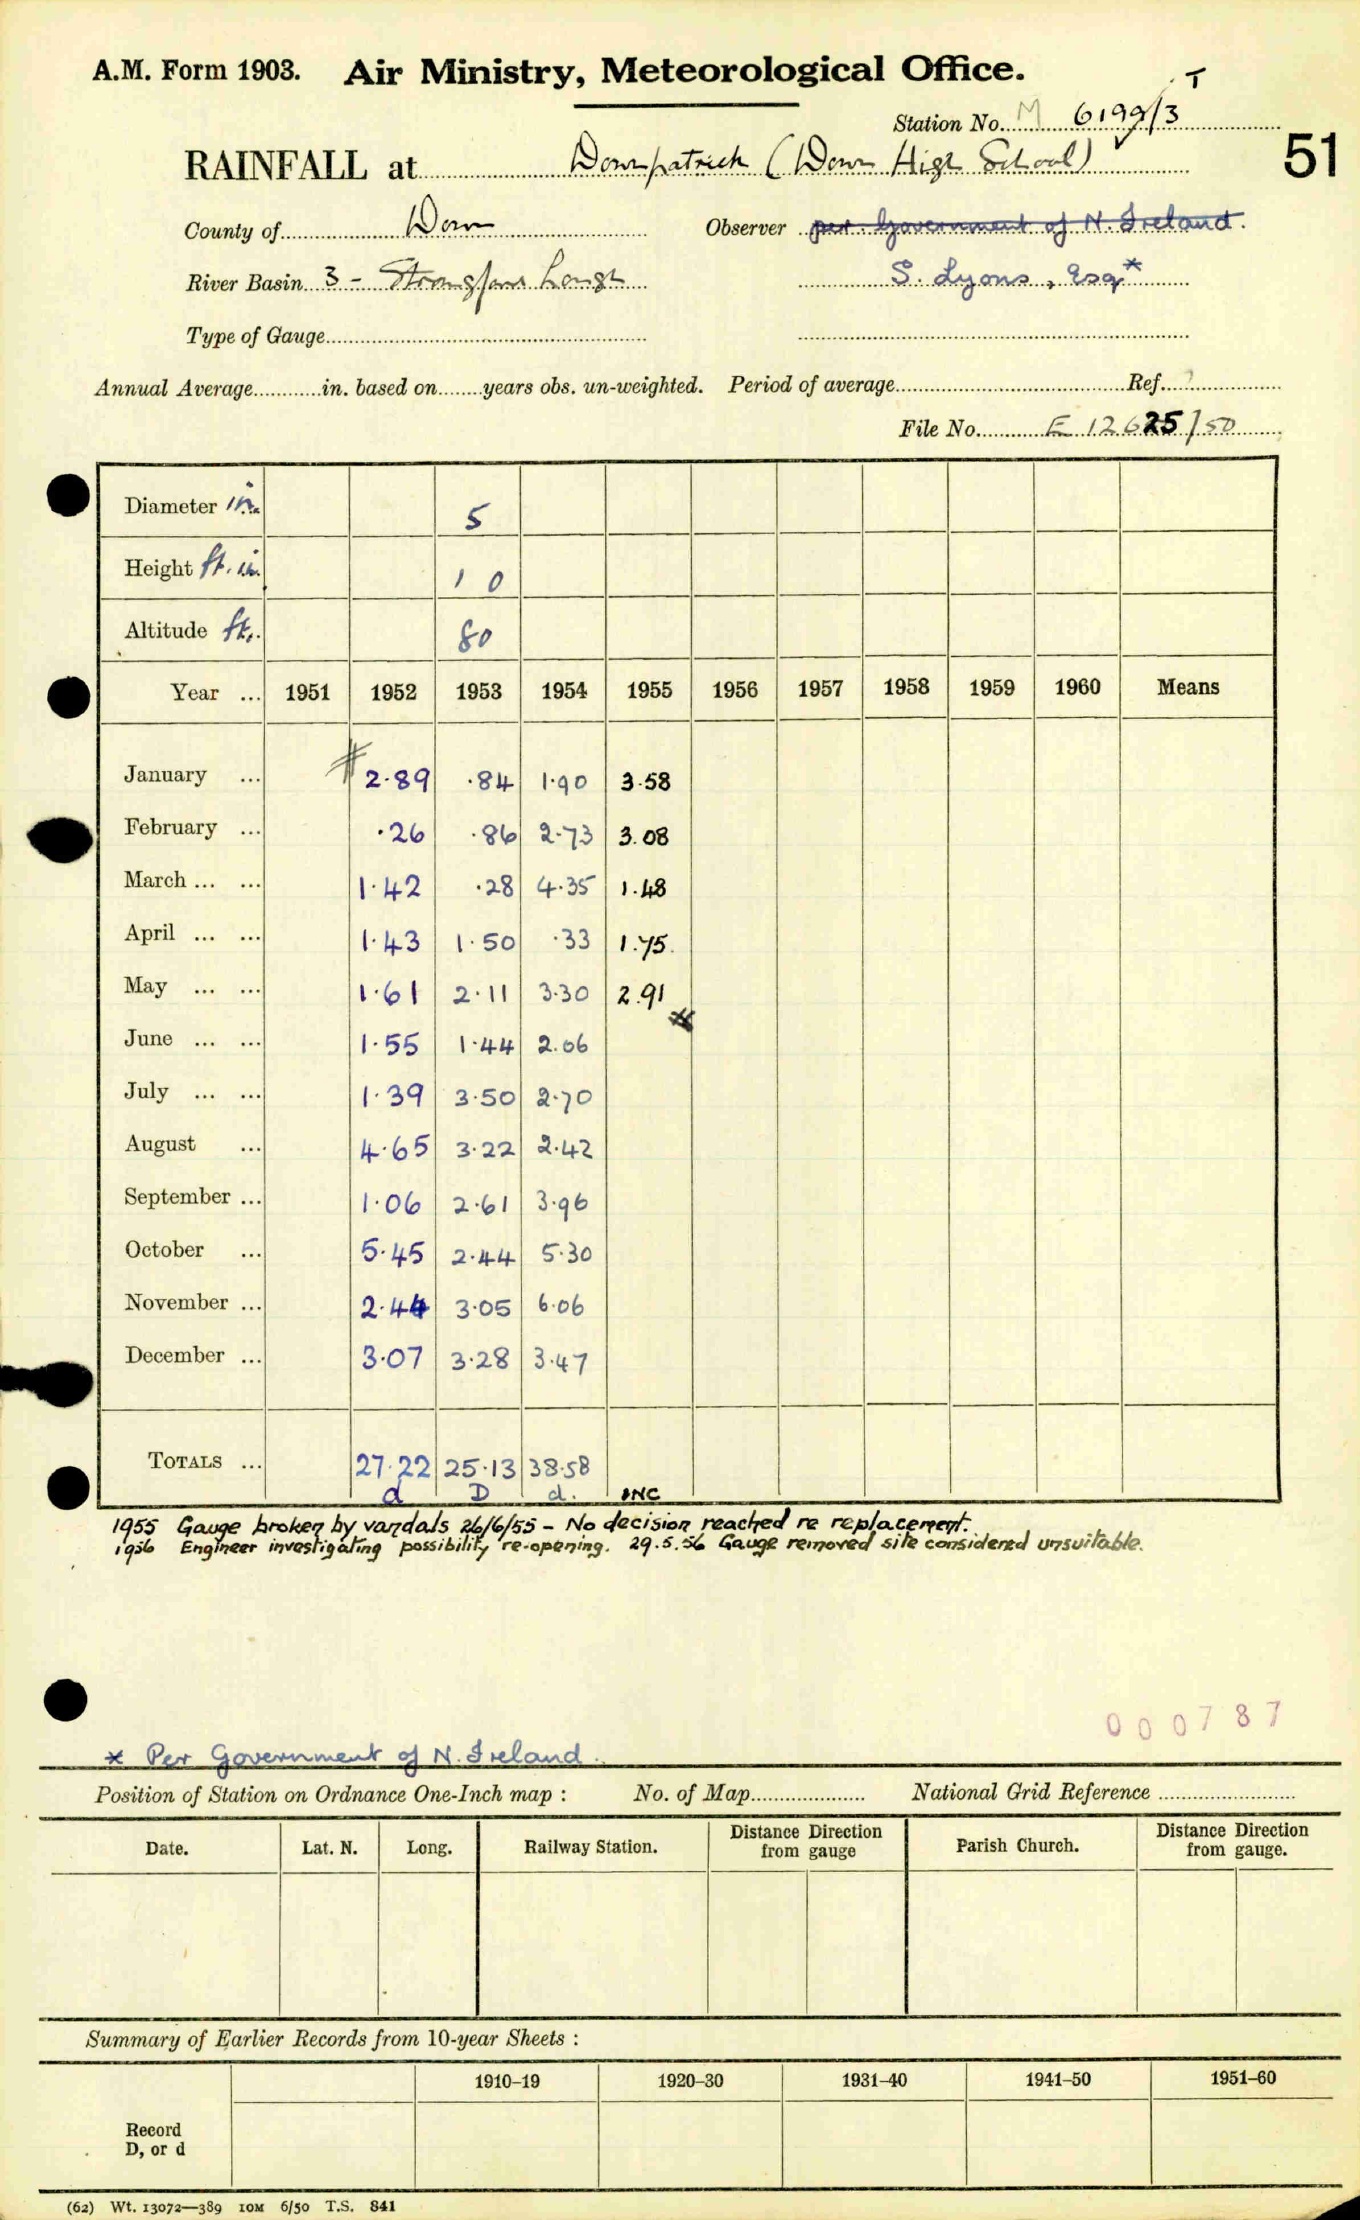 A.M. Form 1903. Air Ministry, Meteorological Office.
T
Station No. M 6199/3
51
RAINFALL at Downpatrick (Down High School)
County of Down Observer per Government of N. Ireland.
River Basin 3 - Strangford Lough S. Lyons, Esq*
Type of Gauge
Annual Average in. based on years obs. un-weighted. Period of average Ref.
File No. E 12625/50
Diameter in. 5
Height ft. in. 1 0
Altitude ft. 80
Year ... 1951 1952 1953 1954 1955 1956 1957 1958 1959 1960 Means
January ... 2.89 .84 1.90 3.58
February ... .26 .86 2.73 3.08
March ... ... 1.42 .28 4.35 1.48
April ... ... 1.43 1.50 .33 1.75
May ... ... 1.61 2.11 3.30 2.91
June ... ... 1.55 1.44 2.06
July ... ... 1.39 3.50 2.70
August ... 4.65 3.22 2.42
September ... 1.06 2.61 3.96
October ... 5.45 2.44 5.30
November ... 2.44 3.05 6.06
December ... 3.07 3.28 3.47
TOTALS ... 27.22 25.13 38.58
d D d. INC
1955 Gauge broken by vandals 26/6/55 - No decision reached re replacement.
1956 Engineer investigating possibility re-opening. 29.5.56 Gauge removed site considered unsuitable.
000787
* Per Government of N. Ireland.
Position of Station on Ordnance One-Inch map : No. of Map National Grid Reference
Date. Lat. N. Long. Railway Station. Distance from Direction gauge Parish Church. Distance from Direction gauge.
Summary of Earlier Records from 10-year Sheets :
1910-19 1920-30 1931-40 1941-50 1951-60
Record
D, or d
(62) Wt. 13072—389 10M 6/50 T.S. 841